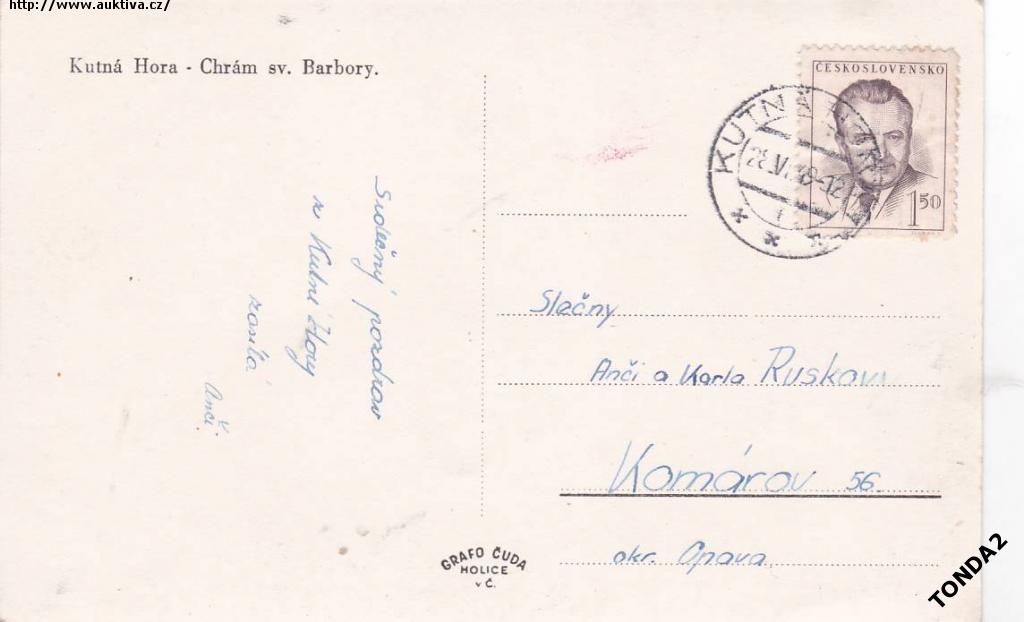 http://www.auktiva.cz/
Kutná Hora - Chrám sv. Barbory.
ČESKOSLOVENSKO
1 50
KUTNÁ HORA
Srdečný pozdrav
z Kutné Hory
zasílá
Anči.
Slečny
Anči a Karla Ruskovy
Komárov 56
okr. Opava
GRAFO ČUDA
HOLICE
v Č.
TONDA2